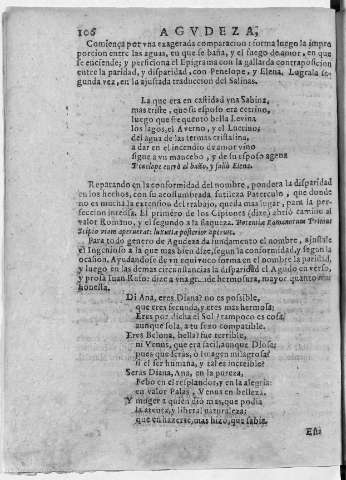 106 AGVDEZA,
Comiença por vna exagerada comparacion: forma luego la impro
porcion entre las aguas, en que se baña, y el fuego de amor, en que
se enciende; y perficiona el Epigrama con la gallarda contraposicion
entre la paridad, y disparidad, con Penelope, y Elena. Lograla se-
gunda vez, en la ajustada traduccion del Salinas.
La que era en castidad vna Sabina,
mas triste, que su esposo era cetrino,
luego que frequentò bella Levina
los lagos, el Averno, y el Lucrino;
del agua de las termas cristalina,
a dar en el incendio de amor vino
sigue a vn mancebo, y de su esposo agena
Penelope entrò al baño, y saliò Elena.
Reparando en la conformidad del nombre, pondera la disparidad
en los hechos, con su acostumbrada sutileza Paterculo, que donde
no es mucha la extension del trabajo, queda mas lugar, para la per-
feccion intensa. El primero de los Cipiones (dize) abriò camino al
valor Romano, y el segundo a la flaqueza. Potentiæ Romanorum Primus
Scipio viam aperuerat: luxuriæ posterior aperuit.
Para todo genero de Agudeza da fundamento el nombre, ajustale
el Ingenioso a la que mas bien dize, segun la conformidad, y segun la
ocasion. Ayudandose de vn equivoco forma en el nombre la paridad,
y luego en las demas circunstancias la disparidad el Agudo en verso,
y prosa Iuan Rufo: dize a vna grande hermosura, mayor quanto mas
honesta.
Di Ana, eres Diana? no es possible,
que eres fecunda, y eres mas hermosa;
Eres por dicha el Sol? tampoco es cosa,
aunque sola, a tu sexo compatible.
Eres Belona, bella? fue terrible,
ni Venus, que era facil, aunque Diosa;
pues que seràs, ò Imagen milagrosa?
si el ser humana, y tal es increible?
Seràs Diana, Ana, en la pureza,
Febo en el resplandor, y en la alegria:
en valor Palas, Venus en belleza.
Y muger a quien diò mas, que podia
la atenta, y liberal naturaleza;
que en hazerte, mas hizo, que sabia.
Esta